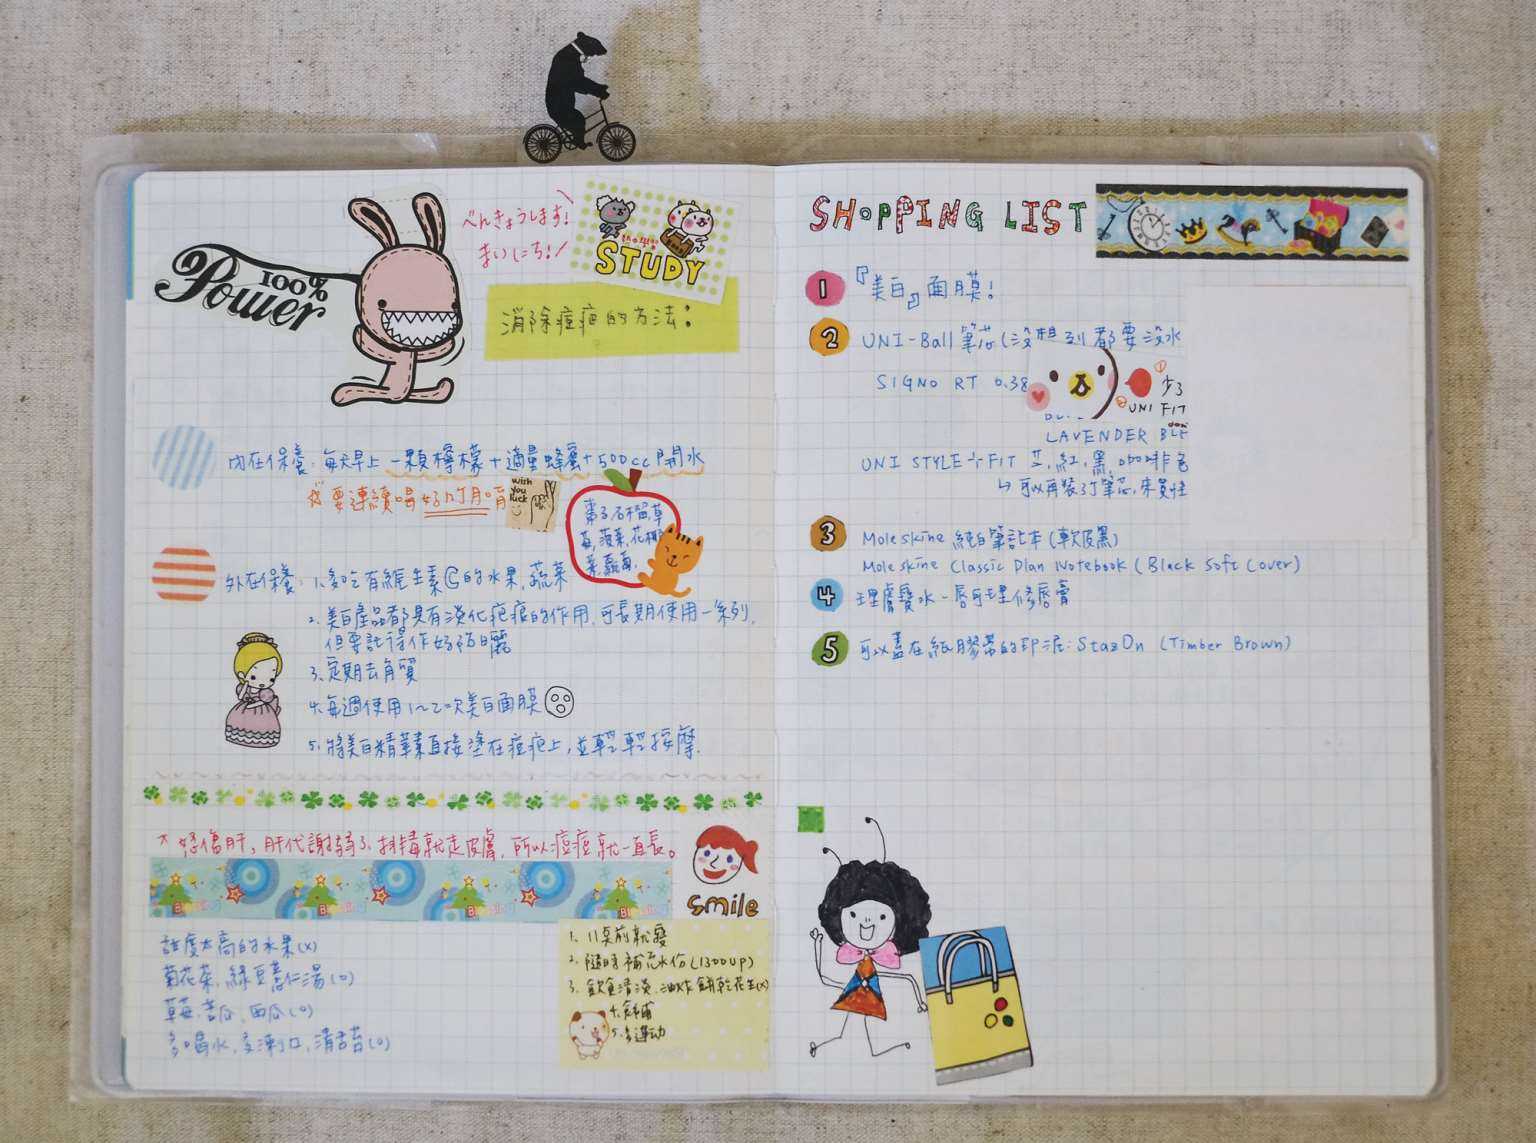 100%
Power
べんきょうします!
まいにち!
STUDY
消除痘疤的方法:
內在保養:每天早上一顆檸檬+適量蜂蜜+500cc開水
要連續喝好幾個月唷
wish
you
luck
棗子,石榴,草
莓,菠菜,花椰
菜,蘿蔔.
外在保養:1.多吃有維生素C的水果,蔬菜
2.美白產品都具有淡化疤痕的作用,可長期使用一系列,
但要記得作好防曬
3.定期去角質
4.每週使用1~2次美白面膜
5.將美白精華素直接塗在痘疤上,並輕輕按摩.
好傷肝,肝代謝弱了,排毒就走皮膚,所以痘痘就一直長。
Blessing Blessing Blessing Blessing
smile
甜度太高的水果(x)
菊花茶,綠豆薏仁湯(o)
草莓,苦瓜,西瓜(o)
多喝水,多漱口,清舌苔(o)
1. 11點前就寢
2.隨時補充水份(1300up)
3.飲食清淡,油炸餅乾花生(x)
4.敷面
5.多運动
SHOPPING LIST
1 『美白』面膜!
2 UNI-Ball 筆芯(沒想到都要沒水
SIGNO RT 0.38
UNI FIT
LAVENDER BLE
UNI STYLE FIT 芯,紅,黑,咖啡色
↳可以再裝3丁筆芯,未買性
3 Moleskine 純白筆記本(軟皮黑)
Moleskine Classic Plan Notebook (Black Soft Cover)
4 理膚寶水-唇可理修唇膏
5 可以蓋在紙膠帶的印泥:StazOn (Timber Brown)